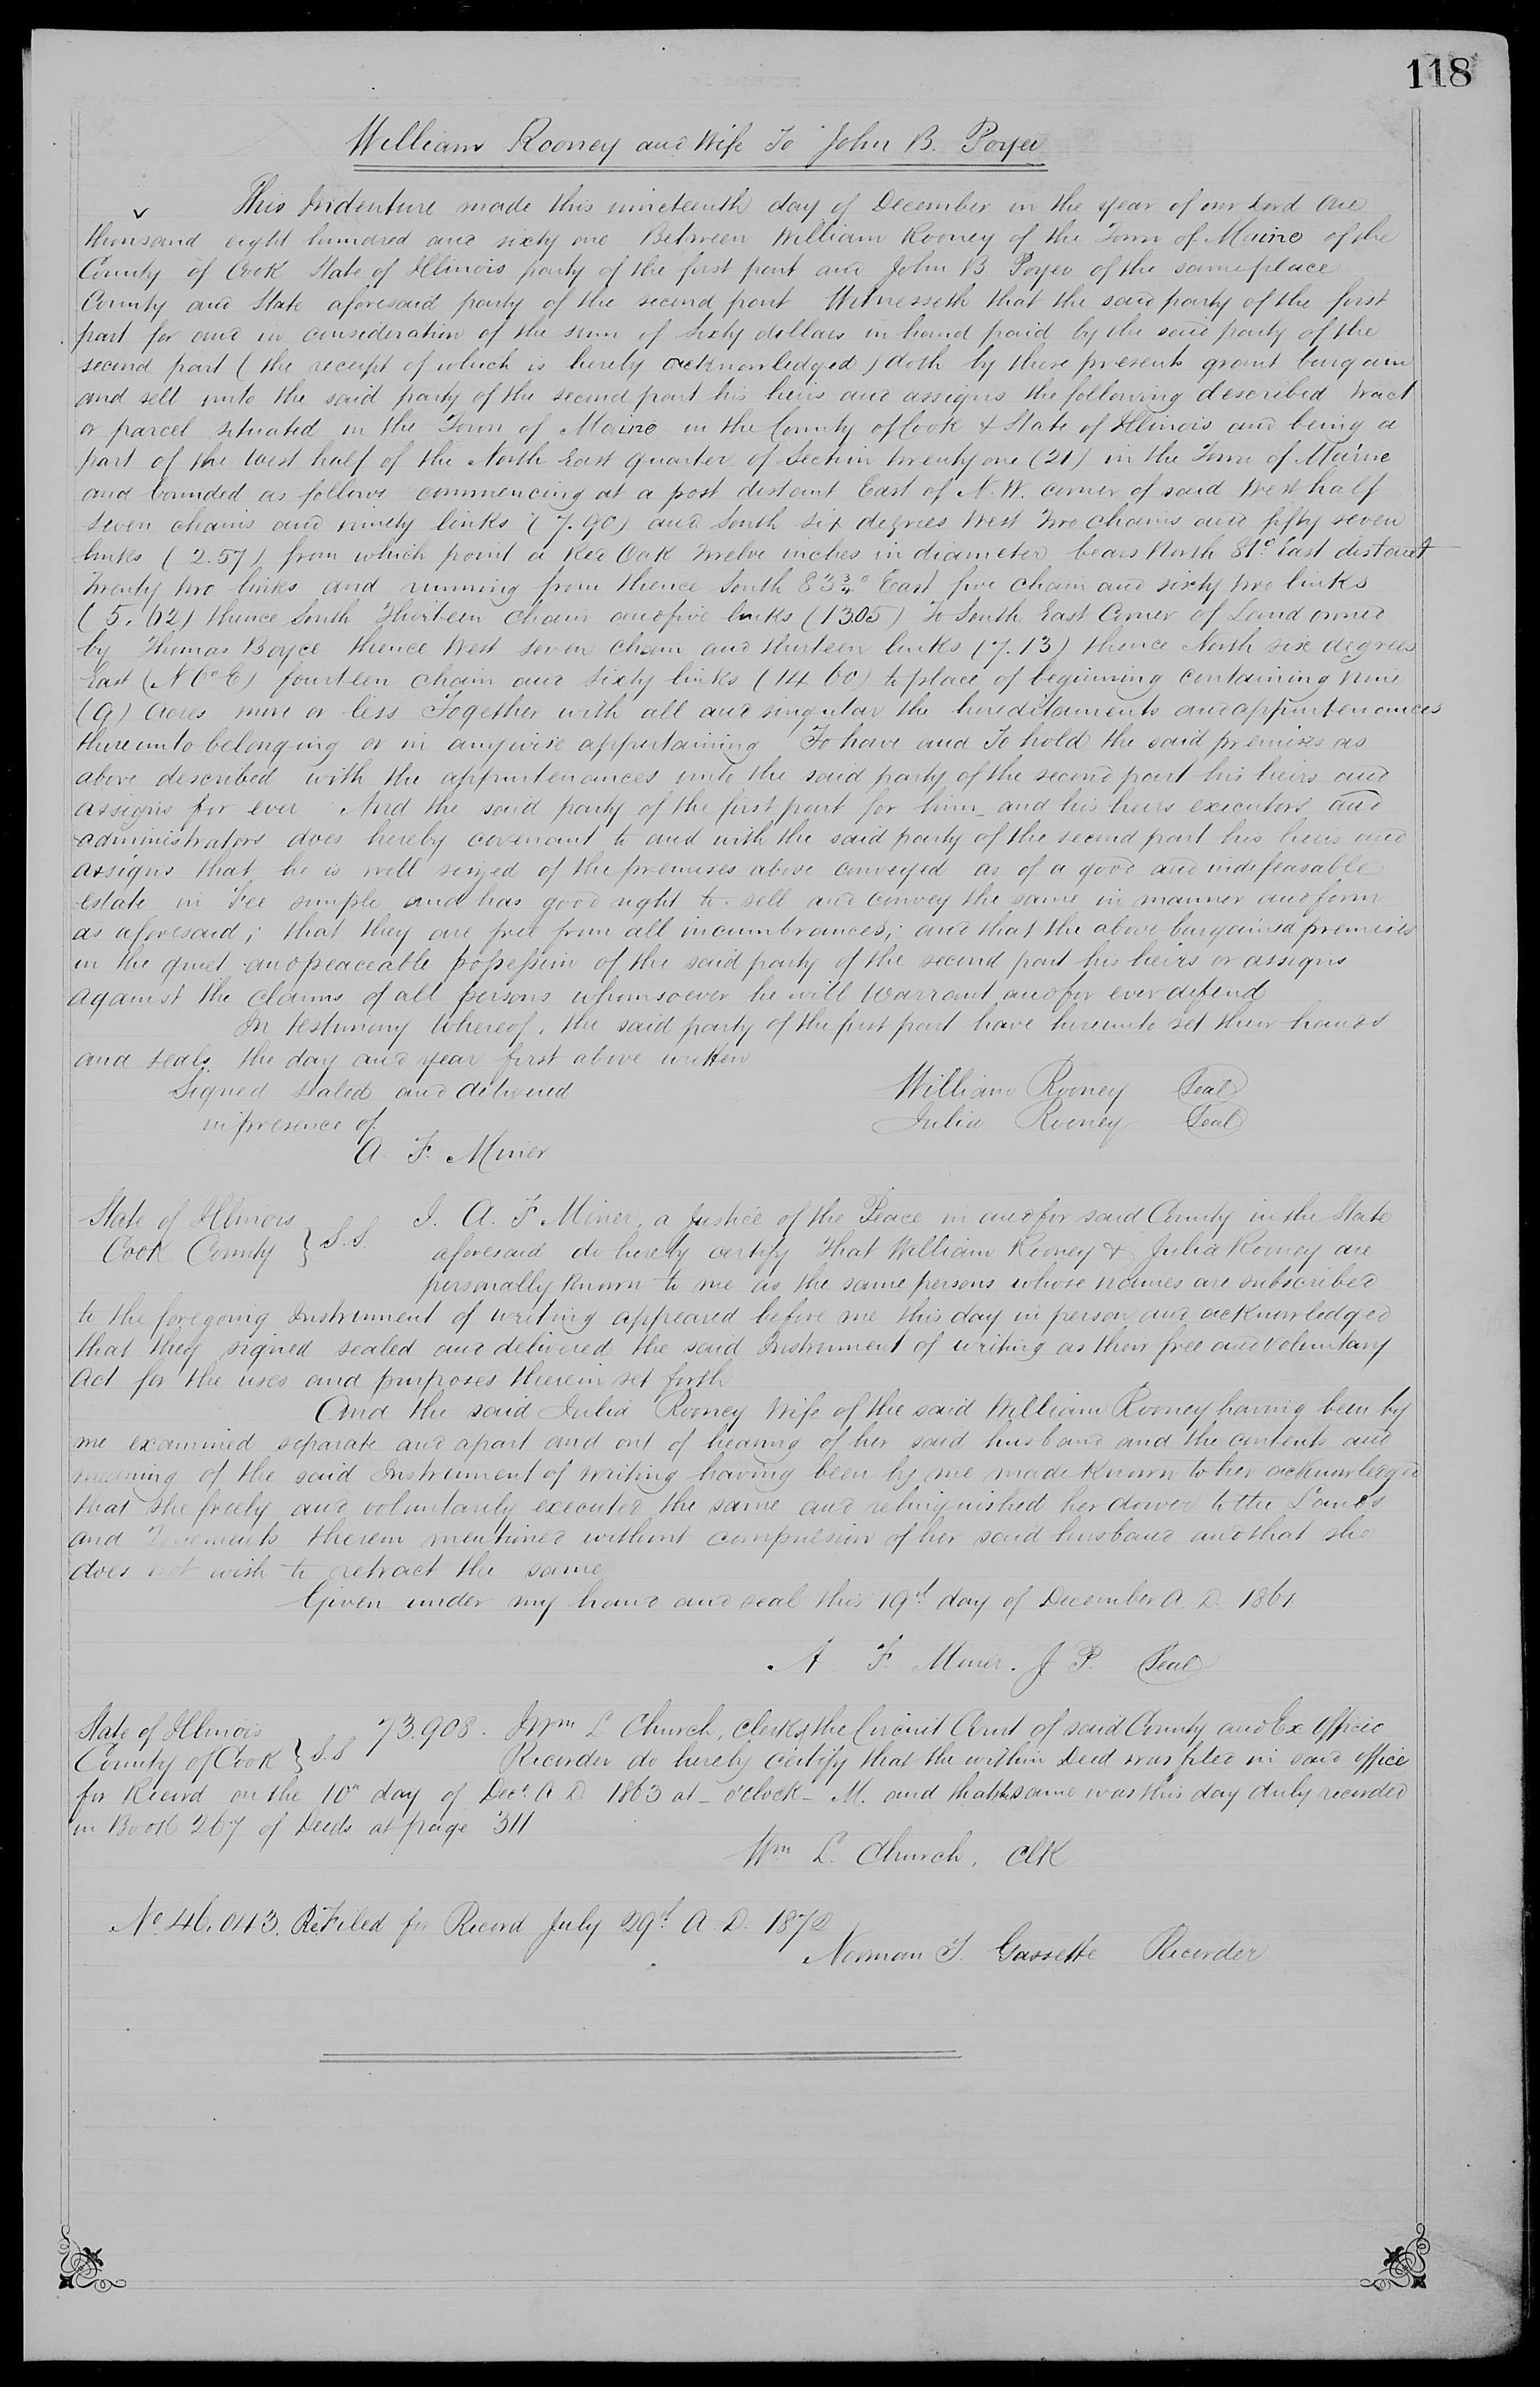 118
William Rooney and Wife To John B. Poyer
v This Indenture made this nineteenth day of December in the year of our Lord One
thousand eight hundred and sixty one Between William Rooney of the Town of Maine of the
County of Cook State of Illinois party of the first part and John B Poyer of the same place
County and State aforesaid party of the second part Witnesseth that the said party of the first
part for and in consideration of the sum of Sixty dollars in hand paid by the said party of the
second part (the receipt of which is hereby acknowledged) doth by these presents grant bargain
and sell unto the said party of the second part his heirs and assigns the following described tract
or parcel situated in the Town of Maine in the County of Cook & State of Illinois and being a
part of the West half of the North East quarter of Section twenty one (21) in the Town of Maine
and bounded as follows commencing at a post distant East of N.W. corner of said West half
seven chains and ninety links (7.90) and South six degrees West Two chains and fifty seven
links (2.57) from which point a Red Oak Twelve inches in diameter bears North 81° East distant
twenty two links and running from thence South 83¾° East five chain and sixty two links
(5.62) thence South Thirteen chains and five links (13.05) To South East Corner of Land owned
by Thomas Boyce thence West seven chain and thirteen links (7.13) thence North six degrees
East (N 6° E) fourteen chain and sixty links (14.60) to place of beginning containing nine
(9) Acres more or less Together with all and singular the hereditaments and appurtenances
thereunto belonging or in anywise appertaining To have and To hold the said premises as
above described with the appurtenances unto the said party of the second part his heirs and
assigns for ever And the said party of the first part for him and his heirs executors and
administrators does hereby covenant to and with the said party of the second part his heirs and
assigns that he is well seized of the premises above conveyed as of a good and indefeasable
estate in Fee simple and has good right to sell and convey the same in manner and form
as aforesaid; that they are free from all incumbrances; and that the above bargained premises
in the quiet and peaceable possession of the said party of the second part his heirs or assigns
against the claims of all persons whomsoever he will Warrant and for ever defend
In testimony Whereof, the said party of the first part have hereunto set their hands
and seals the day and year first above written
Signed sealed and delivered William Rooney Seal
in presence of Julia Rooney Seal
A. F. Miner
State of Illinois } S.S. I. A. F Miner, a Justice of the Peace in and for said County in the State
Cook County aforesaid do hereby certify That William Rooney & Julia Rooney are
personally known to me as the same persons whose names are subscribed
to the foregoing Instrument of writing appeared before me this day in person and acknowledged
that they signed sealed and delivered the said Instrument of writing as their free and voluntary
Act for the uses and purposes therein set forth
And the said Julia Rooney Wife of the said William Rooney having been by
me examined separate and apart and out of hearing of her said husband and the contents and
meaning of the said Instrument of writing having been by me made known to her acknowledged
that she freely and voluntarily executed the same and relinquished her dower to the Lands
and Tenements therein mentioned without compulsion of her said husband and that she
does not wish to retract the same
Given under my hand and seal this 19th day of December A.D. 1861
A F. Miner. J P. Seal
State of Illinois } S.S 73.908. I Wm L Church, clerk of the Circuit Court of said County and Ex Officio
County of Cook Recorder do hereby certify that the within Deed was filed in said office
for Record on the 10th day of Decr A D 1863 at - o'clock - M. and that the same was this day duly recorded
in Book 267 of Deeds at page 311
Wm L. Church, Clk
No. 46.043. ReFiled for Record July 29th A.D. 1872
Norman T. Gassette Recorder